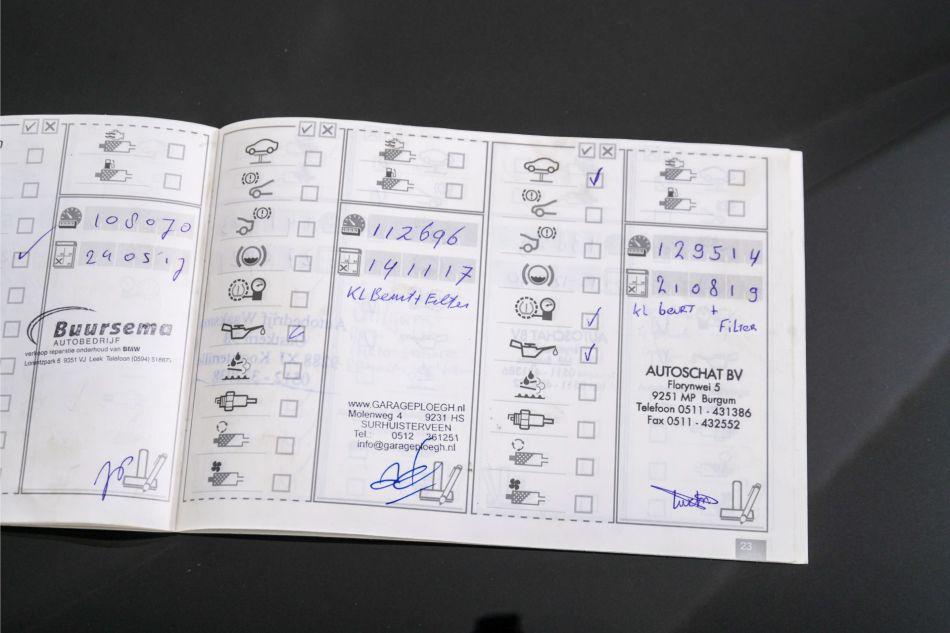 108070
240517
Buursema
AUTOBEDRIJF
verkoop reparatie onderhoud van BMW
Lorentzpark 6 9351 VJ Leek Telefoon (0594) 518677
112696
141117
KL Beurt + Filter
www.GARAGEPLOEGH.nl
Molenweg 4 9231 HS
SURHUISTERVEEN
Tel.: 0512 361251
info@garageploegh.nl
129514
210819
KL beurt +
Filter
AUTOSCHAT BV
Florynwei 5
9251 MP Burgum
Telefoon 0511 - 431386
Fax 0511 - 432552
23